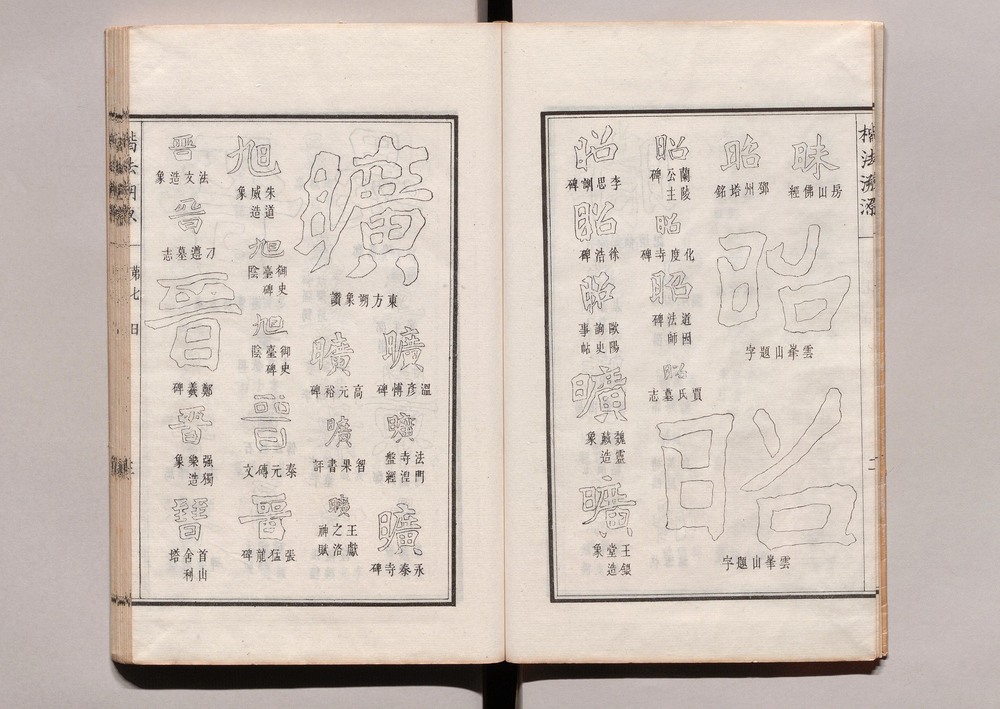 楷法溯源
昧
房山佛經
昭
邠州塔銘
昭
雲峯山題字
昭
雲峯山題字
昭
蘭陵公主碑
昭
化度寺碑
昭
道因法師碑
昭
賈氏墓志
昭
李思訓碑
昭
徐浩碑
昭
歐陽詢史事帖
曠
魏靈藏造象
曠
王銀堂造象
曠
東方朔象讚
曠
溫彥博碑
曠
法門寺湼盤經
曠
永泰寺碑
曠
高元裕碑
曠
智果書評
曠
王獻之洛神賦
旭
朱道威造象
旭
御史臺碑陰
旭
御史臺碑陰
晉
秦元傳文
晉
張猛龍碑
晉
法文造象
晉
刀遵墓志
晉
鄭羲碑
晉
强獨樂造象
晉
首山舍利塔
第七